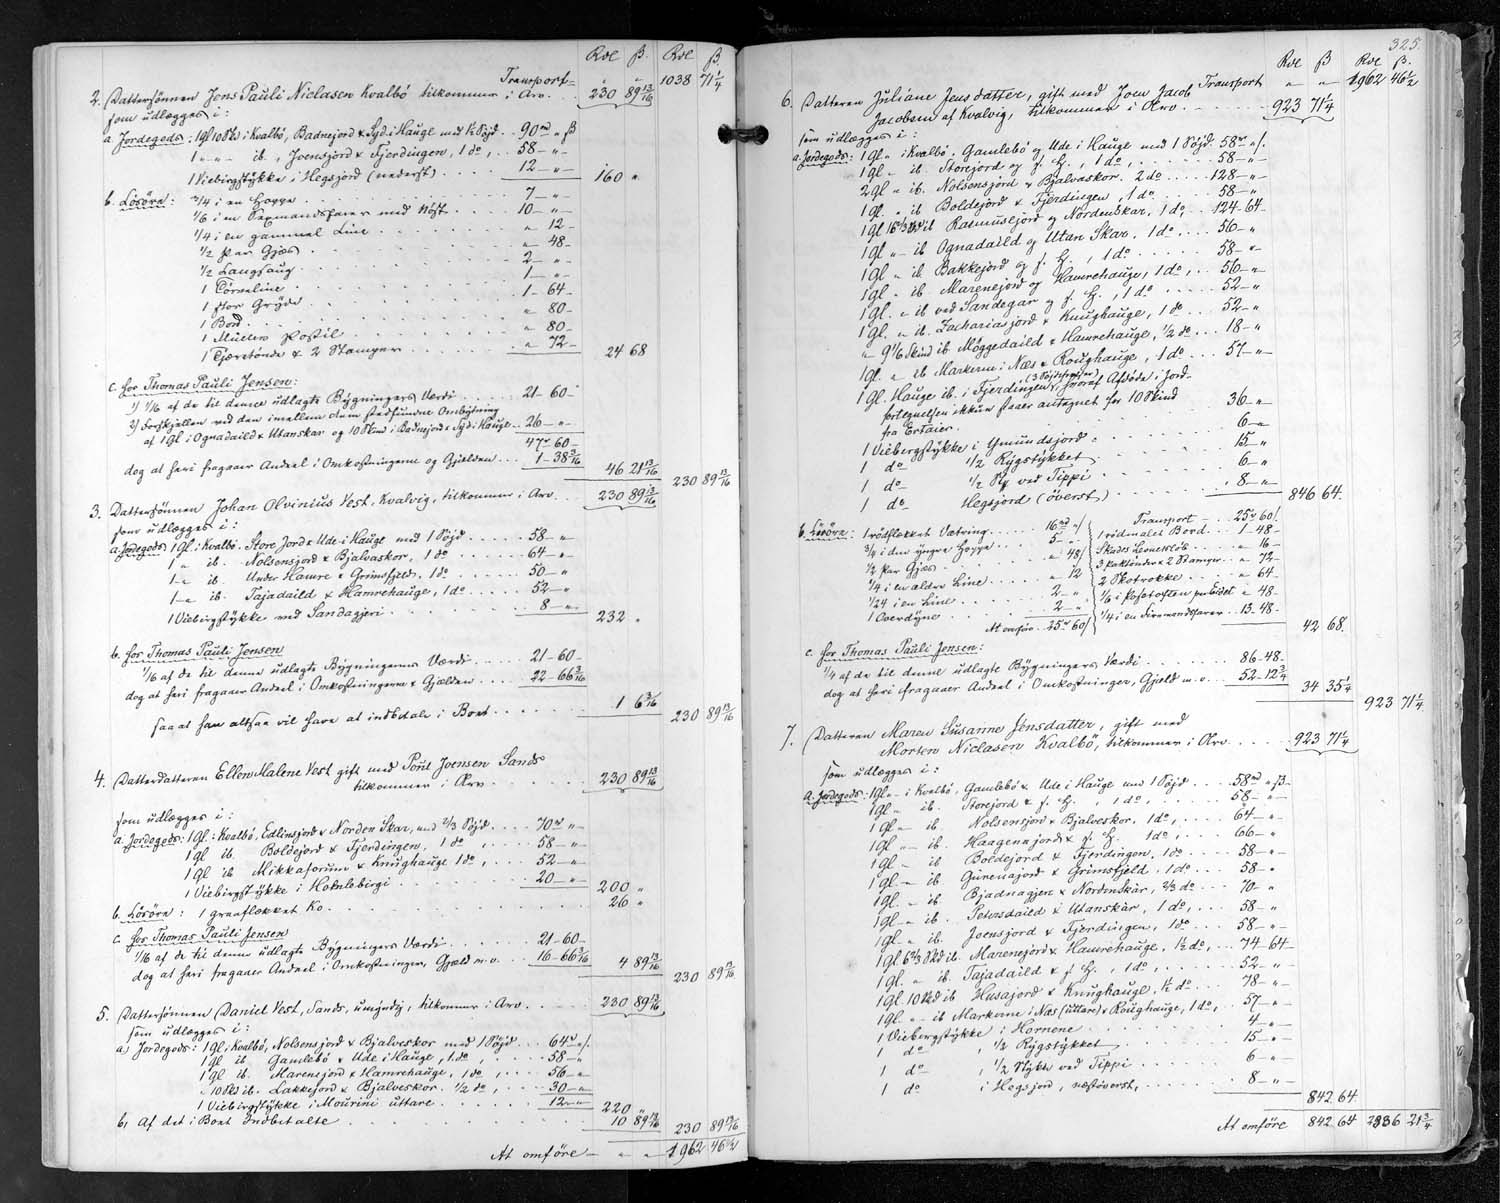 Rdl ß. Rdl ß.
Transport „ „ 1038 71 1/4
2. Dattersønnen Jens Pauli Niclasen Kvalbø tilkommer i Arv. . . 230 89 13/16
som udlægges i:
a. Jordegods: 1 gl 10 Skd i Kvalbø, Badnejord & Syd i Hauge med 1/2 Søjd . . 90 rd „ ß
1 „ „ ib. , Joensjord & Fjerdingen, 1 do, . . 58 – „ –
1 Viebirgstykke i Hegsjord (nederst) . . . . 12 – „ – 160 „
b. Løsøre: 3/4 i en Hoppe . . . . 7 – „ –
1/6 i en Sexmandsfarer med Nøst . . . . 10 – „ –
1/4 i en gammel Line . . . . „ 12 –
1/2 Par Gjæs . . . . „ 48 –
1/2 Langsaug . . . . 2 – „ –
1 Tørveline . . . . 1 – „ –
1 stor Gryde . . . . 1 – 64 –
1 Bord . . . . „ 80 –
1 Müllers Postil . . . . „ 80 –
1 Tjæretønde & 2 Stamper . . . . „ 72 – 24 68
c. for Thomas Pauli Jensen:
1) 1/16 af de til denne udlagte Bygningers Værdi . . . . 21 – 60 –
2) Forskjellen ved den imellem dem stedfundne Ombytning
af 1 Gl i Ognadaild & Utanskar og 10 Skind i Badnejord & Syd i Hauge . . 26 – „ –
47 rd 60 –
dog at heri fragaaer Andeel i Omkostningerne og Gjælden . . . 1 – 38 3/16 46 21 13/16 230 89 13/16
3. Dattersønnen Johan Olvinius Vest, Kvalvig, tilkommer i Arv . . . 230 89 13/16
som udlægges i:
a. Jordegods 1 Gl. i Kvalbø. Store Jord & Ude i Hauge med 1 Søjd . . . . 58 – „
1 „ ib. Nolsensjord & Bjalvaskor, 1 do . . . . 64 – „ –
1 – „ ib. Under Hamre & Grimsfjeld, 1 do . . . . 50 – „
1 – „ ib. Tajadaild & Hamrehauge, 1 do . . . . 52 – „ –
1 Viebirgstykke ved Sandagjeri . . . . 8 – „ – 232 „
b. for Thomas Pauli Jensen
1/16 af de til denne udlagte Bygningernes Værdi . . . . 21 – 60 –
dog at heri fragaaer Andeel i Omkostningerne & Gjælden . . . . 22 – 66 3/16
saa at han altsaa vil have at indbetale i Boet . . . . 1 6 3/16 230 89 13/16
4. Datterdatteren Ellen Malene Vest gift med Poul Joensen Sands
tilkommer i Arv . . . . 230 89 13/16
som udlægges i:
a. Jordegods: 1 Gl. i Kvalbø, Edlinsjord & Norden Skar, med 2/3 Søjd . . . 70 rd „ –
1 gl ib. Boldejord & Fjerdingen, 1 do , . . . 58 – „ –
1 gl ib Mikkaforum & Knughauge 1 do , . . 52 – „ –
1 Viebirgstykke i Hornlebirgi . . . . 20 – „ – 200 „
b. Løsøre: 1 graaflækket Ko . . . . 26 „
c. for Thomas Pauli Jensen
1/16 af de til denne udlagte Bygningers Værdi . . . . 21 – 60 –
dog at heri fragaaer Andeel i Omkostninger, Gjæld m.v. . . . 16 – 66 3/16 4 89 13/16 230 89 13/16
5. Dattersønnen Daniel Vest, Sands, umyndig, tilkommer i Arv . . . 230 89 13/16
som udlægges i:
a) Jordegods: 1 Gl. i Kvalbø, Nolsensjord & Bjalveskor med 1 Søjd . . . 64 rd „ /.
1 gl ib. Gamlebø & Ude i Hauge, 1 do . . . . 58 – „
1 gl ib. Marensjord & Hamrehauge, 1 do , . . . 56 – „
„ 10 Skd ib. Lakkejord & Bjalveskor. 1/2 do , . . . . 30 – „
1 Viebirgstykke i Mourini uttare . . . . 12 – „ 220 „
b, Af det i Boet Indbetalte . . . . 10 89 13/16 230 89 13/16
At omføre – „ „ 1962 46 1/2
325.
Rdl ß Rdl ß.
Transport „ „ 1962 46 1/2
6. Datteren Juliane Jensdatter, gift med Joen Jacob
Jacobsen af Kvalvig, tilkommer i Arv . . . . 923 71 1/4
som udlægges i:
a. Jordegods: 1 Gl „ i Kvalbø. Gamlebø og Ude i Hauge med 1 Søjd. 58 rd „ /.
1 gl „ ib. Storejord og s. H. , 1 do, . . . . 58 – „
2 gl „ ib. Nolsensjord & Bjalvaskor. 2 do . . . . 128 – „
1 gl. „ ib. Boldejord & Fjerdingen, 1 do . . . . 58 – „
1 gl 16 2/3 Skd ib Rasmusejord og Nordenskar, 1 do, . . . 124 – 64 –
1 gl „ – ib Ognadaild og Utan Skar. 1 do . . . . 56 – „
1 gl „ ib. Bakkejord og s. H. , 1 do . . . . 58 – „
1 gl. „ ib. Marenejord og Hamrehauge, 1 do, . . . 56 – „
1 gl. „ ib ved Sandegar og s. H. , 1 do . . . . 52 – „
1 gl. „ ib. Zachariasjord & Knughauge, 1 do . . . . 52 – „
„ 9 1/6 Skind ib. Møggedaild & Hamrehauge, 1/2 do . . . 18 – „
1 gl. „ ib Markerne i Næs & Roughauge, 1 do . . . . 57 – „
1 Gl. Hauge ib. i Fjerdingen (3 Søjdsfoster), hvoraf Afdøde i Jord-
fortegnelsen ikkun staaer antegnet for 10 Skind
fra Ertaier . . . . 36 – „
1 Viebergstykke i Ymundsjord . . . . 6 – „
1 do 1/2 Rygstykket . . . . 15 „
1 do 1/2 St ved Tippi . . . . 6 – „
1 do Hegsjord (øverst) . . . . 8 – „ 846 64.
b. Løsøre: 1 rødflekket Vætring . . . 16 rd „ /
3/4 i den yngre Hoppe . . . 5 – „
1/2 Par Gjæs . . . „ 48 /
1/4 i en ældre Line . . . „ 12
1/24 i en Line . . . 2 – „
1 Overdyne . . . 2 – „
At omføre . . 25 rd 60 /
Transport – . . 25 rd 60 /.
1 rødmalet Bord . . 1 – 48 –
Skades Leverkob . . . „ 16 –
3 Saktønder & 2 Stamper . . „ 72 –
2 Skotrokke . . . „ 64 –
1/6 i Pofstoften „ 48 –
1/4 i en Firemandsfarer . . 13. 48 – 42 68.
c. for Thomas Pauli Jensen:
1/4 af de til denne udlagte Bygningers Værdi . . . . 86 – 48 –
dog at heri fragaaer Andeel i Omkostninger, Gjæld m.v. . . 52 – 12 3/4 34 35 1/4 923 71 1/4
7. Datteren Maren Susanne Jensdatter, gift med
Morten Niclasen Kvalbø, tilkommer i Arv . . . . 923 71 1/4
som udlægges i:
a. Jordegods: 1 Gl „ – i Kvalbø, Gamlebø & Ude i Hauge med 1 Søjd . . . 58 rd „ ß.
1 gl „ ib. Storejord & s. H. , 1 do, . . . . 58 – „
1 gl „ ib. Nolsensjord & Bjalveskor. 1 do, . . . . 64 – „
1 gl „ – ib. Haagennjord & s. H. 1 do, . . . . 66 – „
1 gl – ib. Boldejord & Fjerdingen, 1 do . . . . 58 – „
1 gl. – ib. Gurenajord & Grimsfjeld. 1 do . . . . 58 – „
1 gl. – ib. Bjadnagjen & Nordenskar, 2/3 do . . . . 70 – „
1 gl – „ ib. Petersdaild & Utanskar, 1 do, . . . . 58 – „
1 gl. „ ib. Joensjord & Fjerdingen, 1 do . . . . 58 – „
1 gl 6 2/3 Skd ib. Marenejord & Hamrehauge, 1 1/2 do, . . . 74 – 64 –
1 gl. „ ib Tajadaild & s H. , 1 do, . . . . 52 – „
1 gl. 10 Skd ib Husajord & Knughaugl, 1 1/2 do . . . . 78 – „
1 gl. „ – ib Markerne i Næs (uttare) & Roughauge, 1 do, . . . 57 – „
1 Viebergstykke i Hornene . . . . 4 – „
1 do , 1/2 Rygstykket . . . . 15 – „
1 do , 1/2 Stykk ved Tippi . . . . 6 – „
1 do i Hegsjord, næstøverst, . . . . 8 – „ 842 64
At omføre 842 64 2886 21 3/4